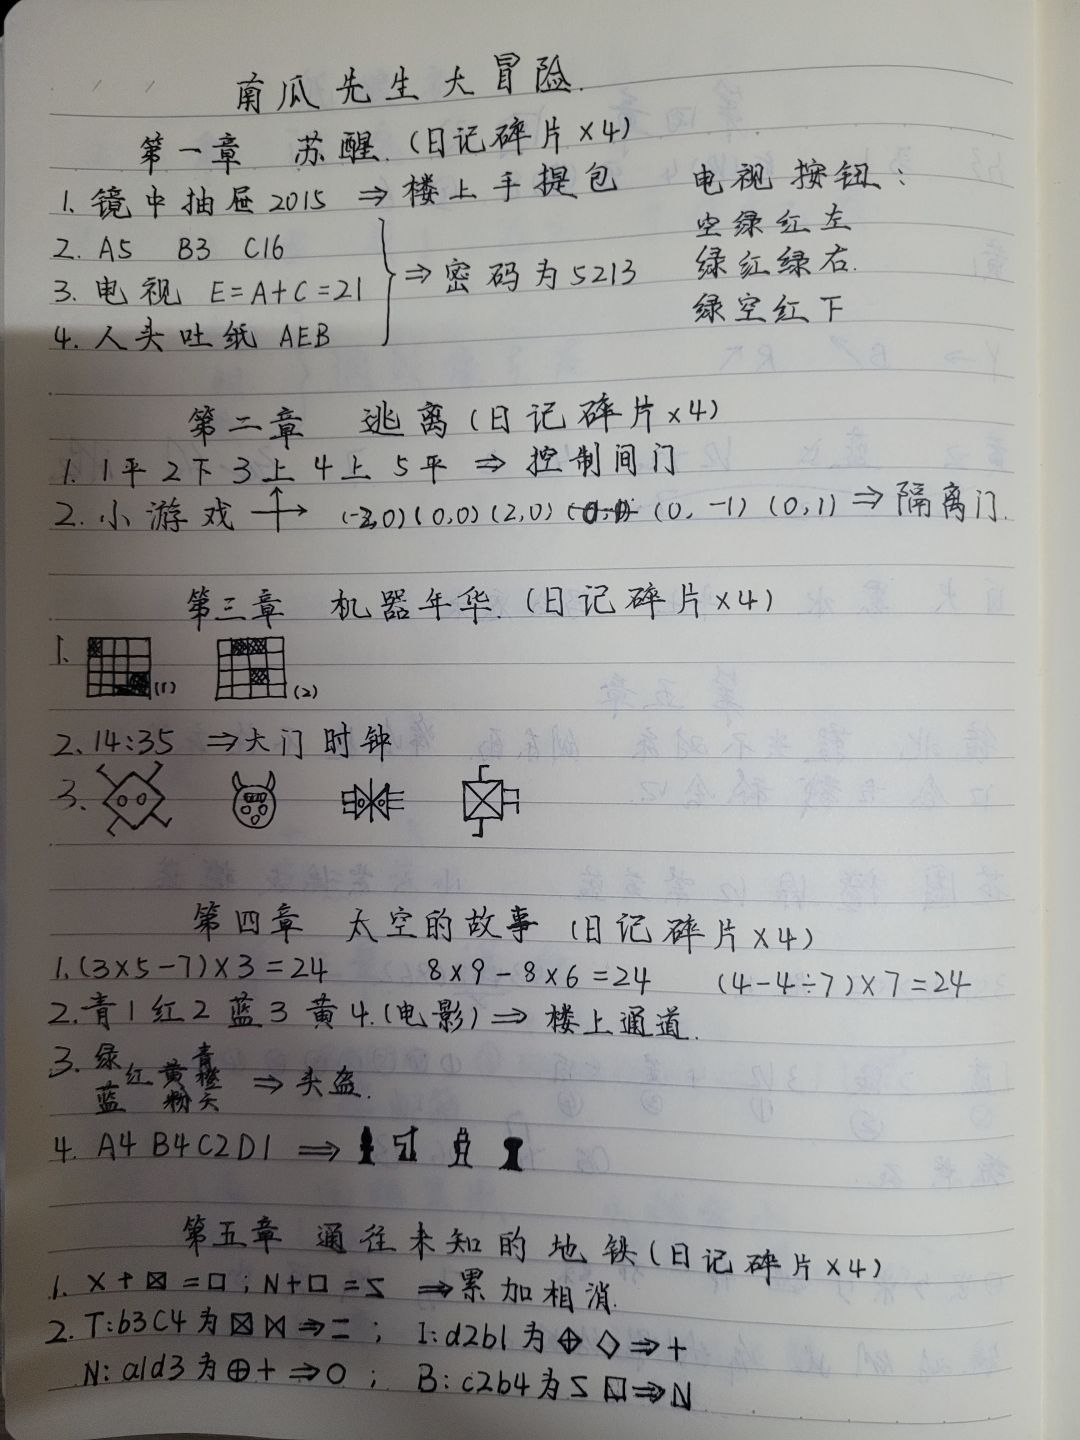 南瓜先生大冒险.
第一章 苏醒.(日记碎片×4)
1. 镜中抽屉2015 ⇒ 楼上手提包
2. A5 B3 C16
3. 电视 E=A+C=21
4. 人头吐纸 AEB
⇒ 密码为5213
电视按钮:
空绿红左
绿红绿右.
绿空红下
第二章 逃离(日记碎片×4)
1. 1平2下3上4上5平 ⇒ 控制间门
2. 小游戏 → (-2,0)(0,0)(2,0) (0,-1)(0,1) ⇒ 隔离门.
第三章 机器年华.(日记碎片×4)
1. (1) (2)
2. 14:35 ⇒大门时钟
3.
第四章 太空的故事(日记碎片×4)
1.(3×5-7)×3=24 8×9-8×6=24 (4-4÷7)×7=24
2.青1红2蓝3黄4.(电影)⇒ 楼上通道.
3. 绿 红黄青
蓝 粉 ⇒ 头盔.
4. A4 B4C2D1 ⇒
第五章 通往未知的地铁(日记碎片×4)
1. X+⊠=□; N+□=S ⇒累加相消.
2. T:b3C4为⊠⋈⇒=; I:d2b1为⌖◇⇒+
N:a1d3为⊕+⇒O; B:c2b4为S⇒N